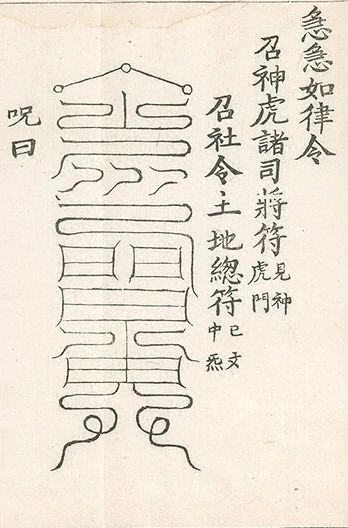 急急如律令
召神虎諸司將符
見神
虎門
召社令土地總符
巳文
中炁
呪曰